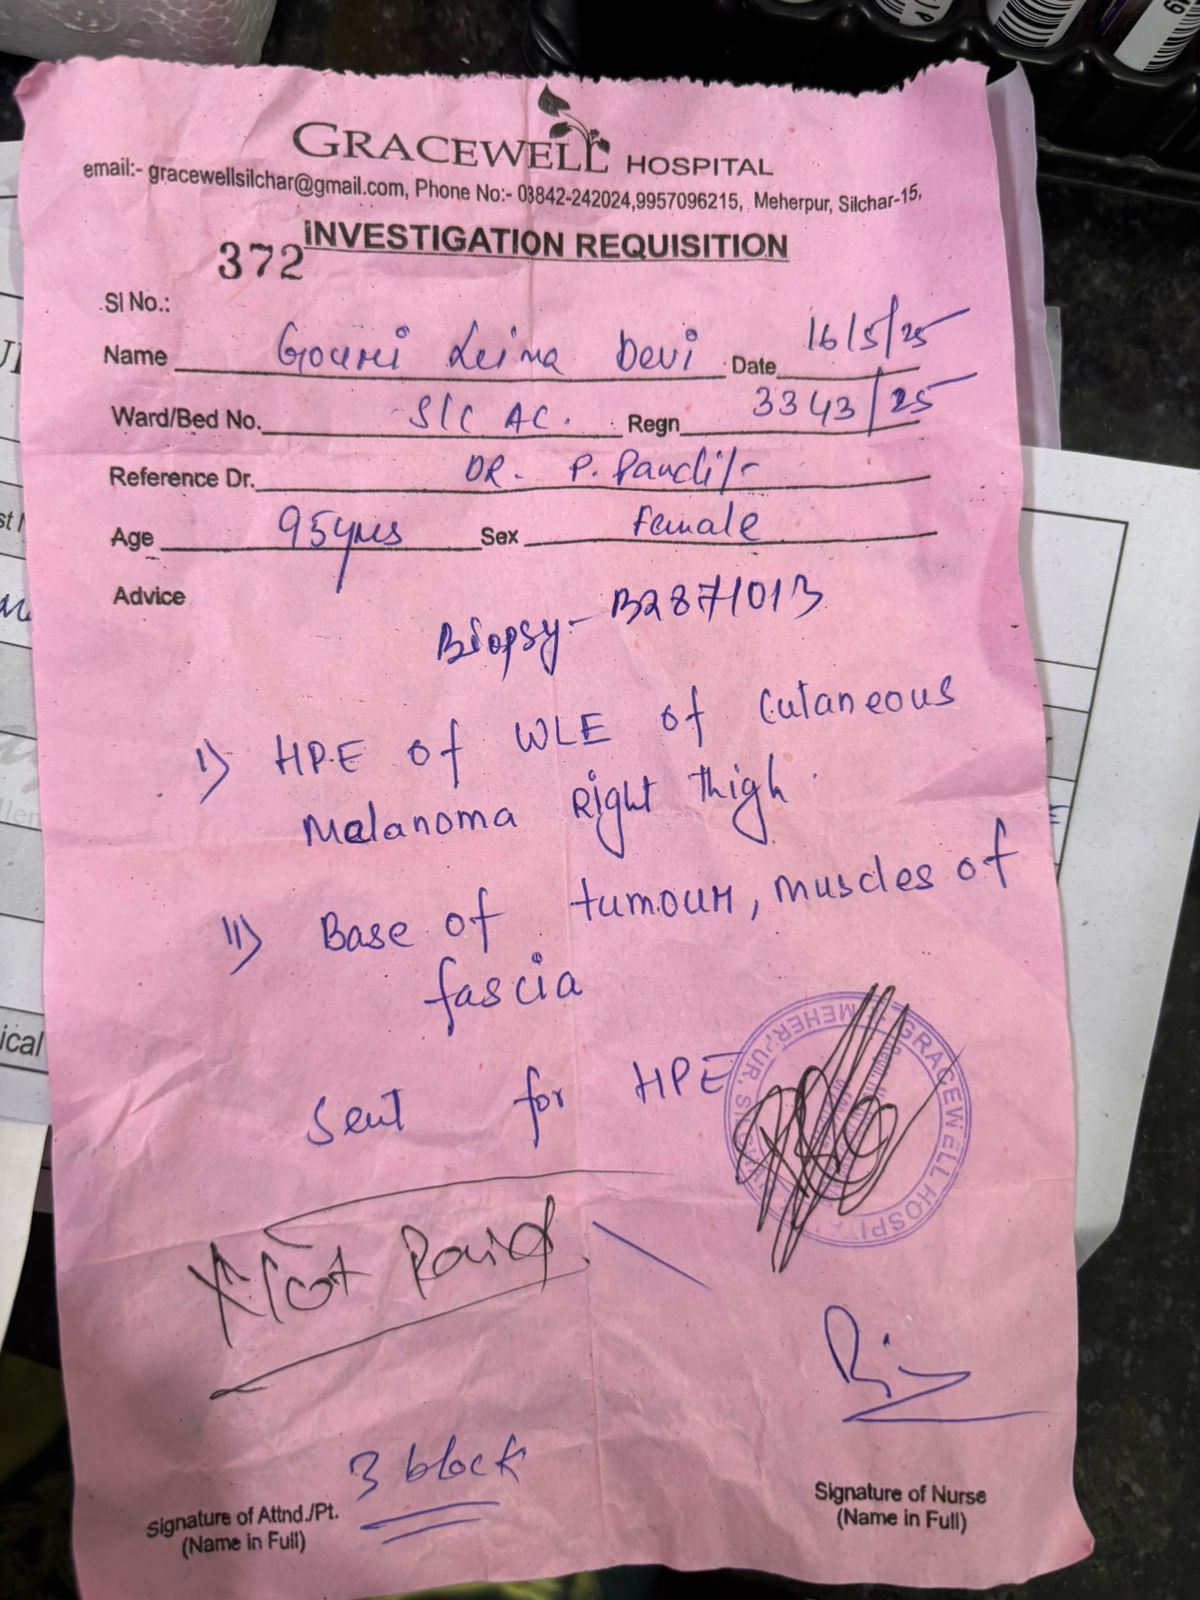 GRACEWELL HOSPITAL
email:- gracewellsilchar@gmail.com, Phone No:- 03842-242024,9957096215, Meherpur, Silchar-15,
INVESTIGATION REQUISITION
372
Sl No.:
Name Gouri Leima Devi Date 16/5/25
Ward/Bed No. S/C AC. Regn 3343/25
Reference Dr. DR. P. Pandit
Age 95yrs Sex Female
Advice
Biopsy - B2871013
I) HPE of WLE of cutaneous
Melanoma Right thigh.
II) Base of tumour, muscles of
fascia
Sent for HPE
GRACEWELL HOSPI
MEHERPUR,
Not Paid.
3 block
Signature of Attnd./Pt.
(Name in Full)
Signature of Nurse
(Name in Full)